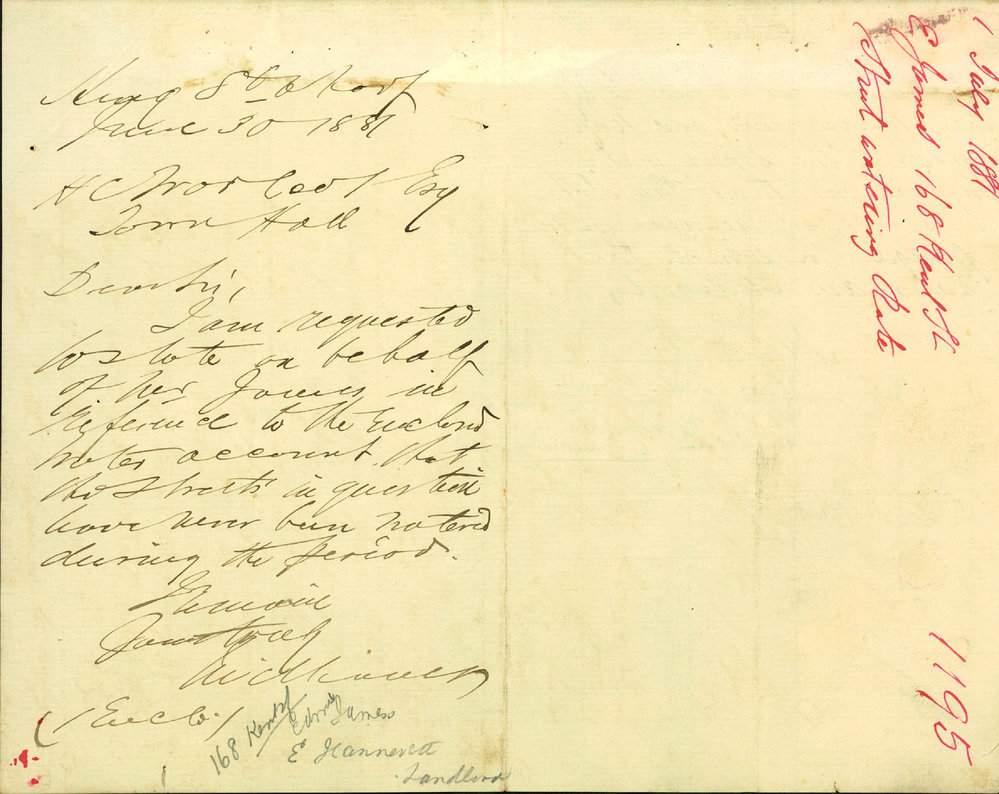 King St & Kent
June 30 1881
H C Woolcott Esq
Town Hall
Dear Sir,
I am requested
to state on behalf
of Mr James in
reference to the enclosed
water account that
the streets in question
have never been watered
during the period.
I remain
Yours truly
(1 Enclo.)
168 Kent St
Edwin James
E Hannevett
Landlord
1 July 1881
E James 168 Kent St
Street watering Rate
1195